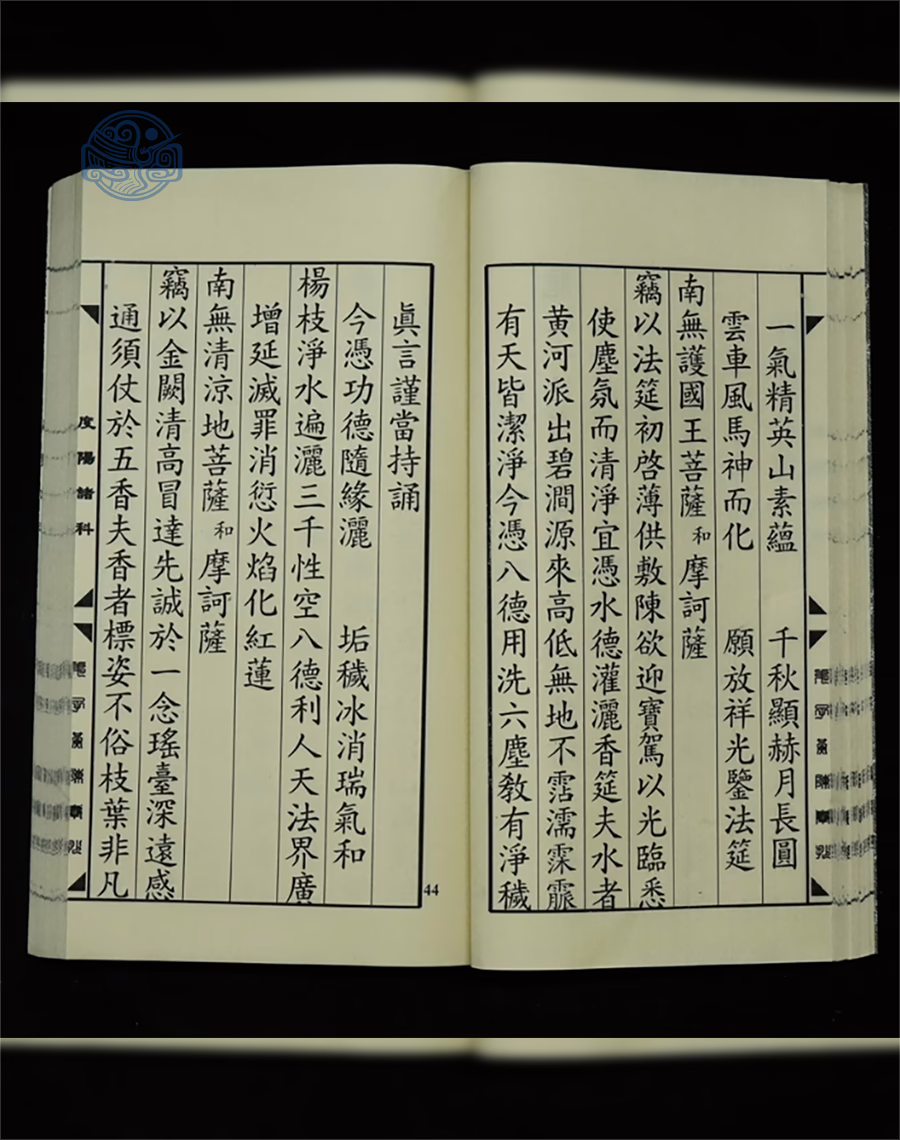 一氣精英山素蘊　千秋顯赫月長圓
雲車風馬神而化　願放祥光鑒法筵
南無護國王菩薩和摩訶薩
竊以法筵初啓薄供敷陳欲迎寶駕以光臨悉
使塵氛而清淨宜憑水德灌灑香筵夫水者
黄河派出碧澗源來高低無地不霑濡霂霢
有天皆潔淨今憑八德用洗六塵敎有淨穢
眞言謹當持誦
今憑功德隨緣灑　垢穢冰消瑞氣和
楊枝淨水遍灑三千性空八德利人天法界廣
增延滅罪消愆火焰化紅蓮
南無清涼地菩薩和摩訶薩
竊以金闕清高冒達先誠於一念瑤臺深遠感
通須仗於五香夫香者標姿不俗枝葉非凡
度陽諸科
44